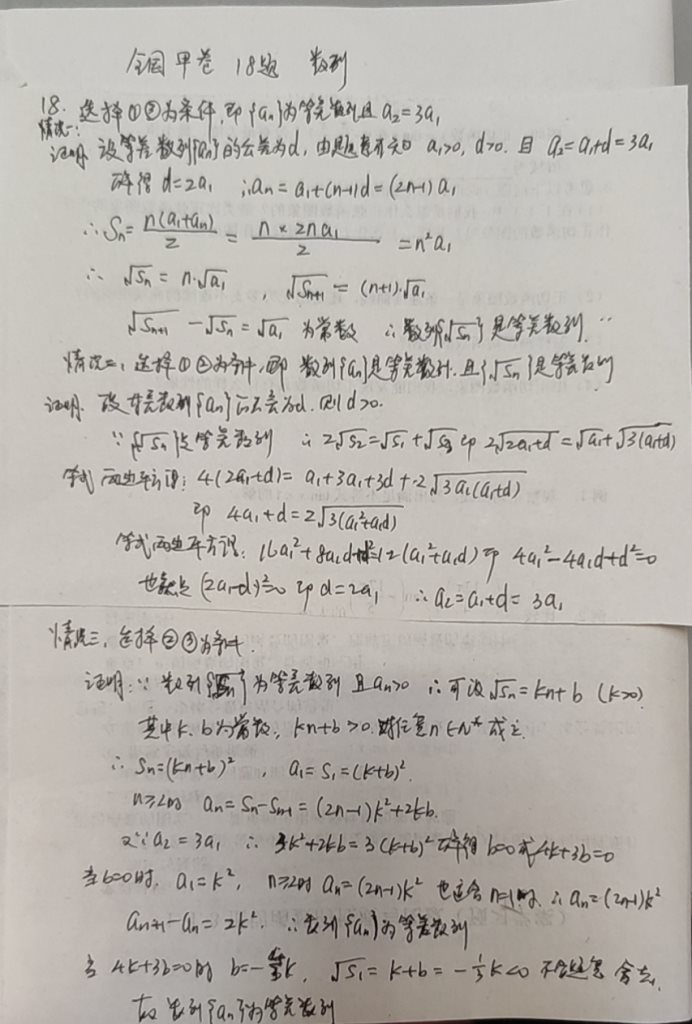 全国甲卷 18题 数列
18. 选择①②为条件,即{an}为等差数列且a₂=3a₁
情况一:
证明: 设等差数列{an}的公差为d, 由题意可知 a₁>0, d>0. 且 a₂=a₁+d=3a₁
解得 d=2a₁ ∴an=a₁+(n-1)d=(2n-1)a₁
∴Sn=n(a₁+an)/2=n×2na₁/2=n²a₁
∴ √Sn=n·√a₁, √Sn+1=(n+1)·√a₁
√Sn+1-√Sn=√a₁ 为常数 ∴数列{√Sn}是等差数列.
情况二、选择①③为条件,即 数列{an}是等差数列.且{√Sn}是等差数列
证明. 设等差数列{an}的公差为d.则d>0.
∵{√Sn}是等差数列 ∴2√S₂=√S₁+√S₃ 即 2√2a₁+d=√a₁+√3(a₁+d)
等式两边平方得: 4(2a₁+d)=a₁+3a₁+3d+2√3a₁(a₁+d)
即 4a₁+d=2√3(a₁²+a₁d)
等式两边平方得: 16a₁²+8a₁d+d²=12(a₁²+a₁d) 即 4a₁²-4a₁d+d²=0
也就是(2a₁-d)²=0 即d=2a₁ ∴a₂=a₁+d=3a₁
情况三、选择②③为条件.
证明:∵ 数列{√Sn}为等差数列 且an>0 ∴可设√Sn=kn+b (k>0)
其中k、b为常数, kn+b>0.对任意n∈N*成立.
∴Sn=(kn+b)², a₁=S₁=(k+b)².
n≥2时 an=Sn-Sn-1=(2n-1)k²+2kb.
又∵a₂=3a₁ ∴3k²+2kb=3(k+b)² 解得 b=0或4k+3b=0
当b=0时, a₁=k², n≥2时 an=(2n-1)k² 也适合n=1时. ∴an=(2n-1)k²
an+1-an=2k². ∴数列{an}为等差数列
当4k+3b=0时 b=-4/3k, √S₁=k+b=-1/3k<0 不合题意 舍去.
故 数列{an}为等差数列